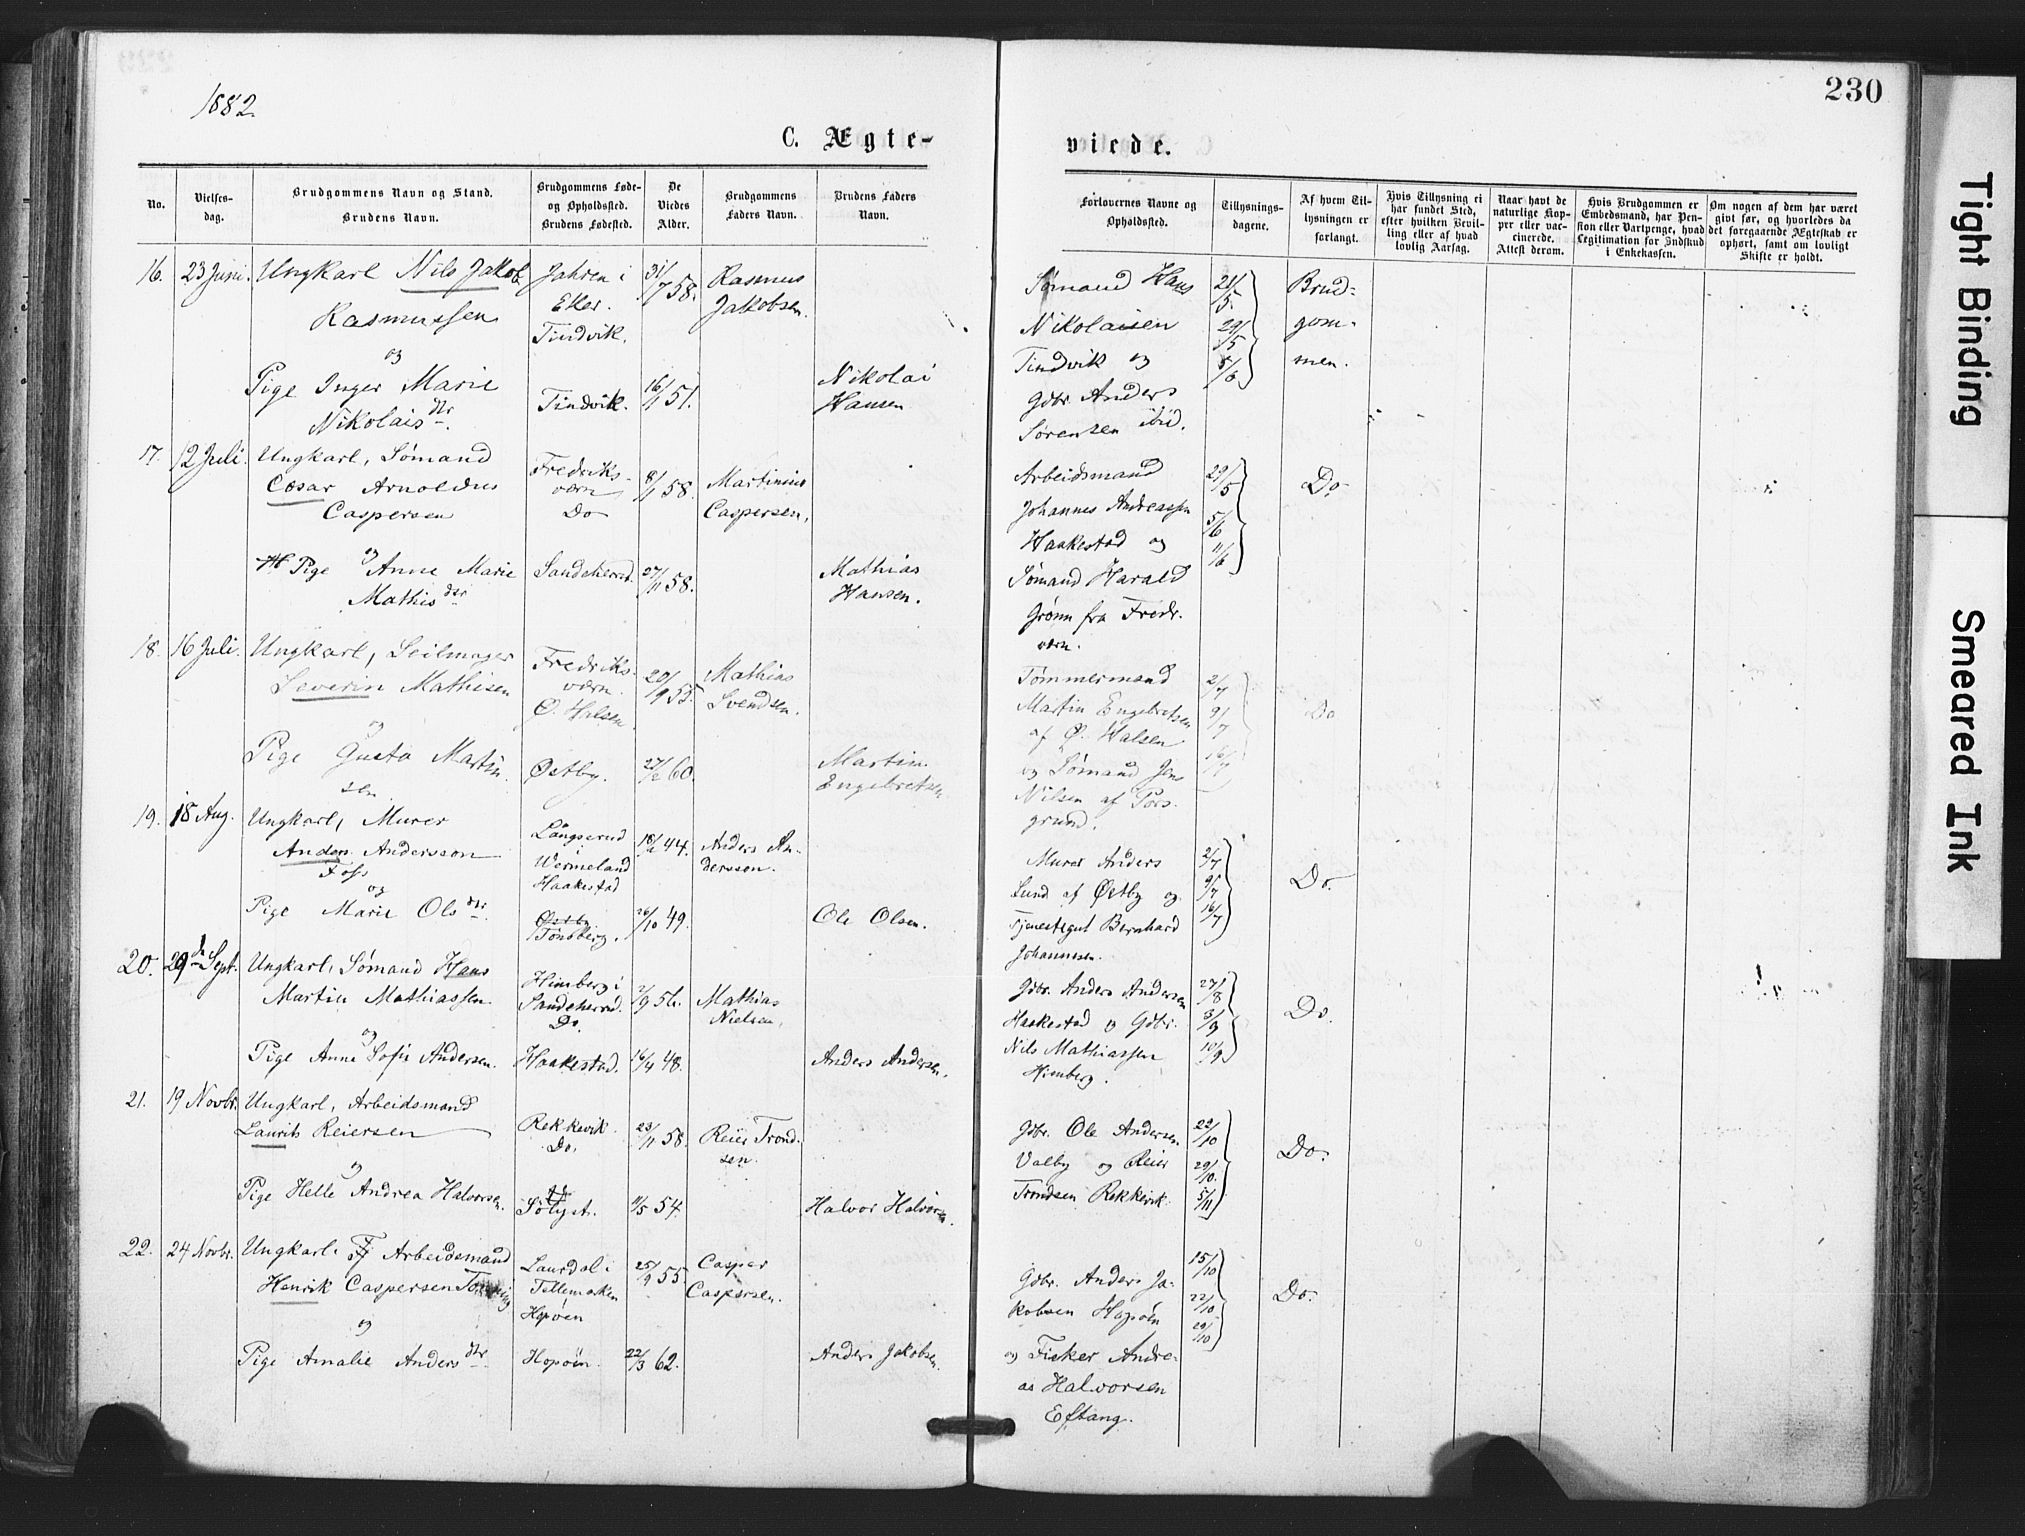 1882.
230
C. Ægte-
viede.
No.
Vielses-
dag.
Brudgommens Navn og Stand.
Brudens Navn.
Brudgommens Føde-
og Opholdssted.
Brudens Fødested.
De
Viedes
Alder.
Brudgommens
Faders Navn.
Brudens Faders
Navn.
Forlovernes Navne og
Opholdssted.
Tillysnings-
dagene.
Af hvem Til-
lysningen er
forlangt.
Hvis Tillysning ei
har fundet Sted,
efter hvilken Bevil-
ling eller af hvad
lovlig Aarsag.
Naar havt de
naturlige Kop-
per eller vac-
cinerede.
Attest derom.
Hvis Brudgommen er
Embedsmand, har Pen-
sion eller Vartpenge, hvad
Legitimation for Indskud
i Enkekassen.
Om nogen af dem har været
gift før, og hvorledes da
det foregaaende Ægteskab er
ophørt, samt om lovligt
Skifte er holdt.
16. 23 Juni. Ungkarl Nils Jakob
Rasmussen
og
Pige Inger Marie
Nikolaisdtr.
Jahren i
Eker.
Tindvik.
Tindvik.
31/7 58.
16/1 51.
Rasmus
Jakobsen.
Nikolai
Hansen
Sømand Hans
Nikolaisen
Tindvik og
Gdbr. Anders
Sørensen ibid.
21/5.
29/5
5/6
Brud-
gom-
men.
17. 12 Juli. Ungkarl, Sømand
Cæsar Arnoldus
Caspersen
og
Pige Anne Marie
Mathisdtr.
Fredriks-
værn
Do
Sandeherred.
8/1 58.
27/11 58.
Martinius
Caspersen.
Mathias
Hansen.
Arbeidsmand
Johannes Andreassen
Haakestad og
Sømand Harald
Grønn fra Fredr.
værn.
29/5
5/6
11/6
Do.
18. 16 Juli. Ungkarl, Seilmager
Severin Mathisen
og
Pige Gusta Martin
sen
Fredriks-
værn.
Ø. Halsen.
Østby.
20/9 55.
27/2 60.
Mathias
Svendsen.
Martin
Engebretsen
Tømmermand
Martin Engebretsen
af Ø. Halsen
og Sømand Jens
Nilsen af Pors-
grund.
2/7
9/7
16/7
Do
19. 18 Aug. Ungkarl, Murer
Anders Andersson
Foss
og
Pige Marie Olsdtr.
Långserud
i
Wermeland
Haakestad
Østby
Tønsberg.
18/2 44.
26/10 49.
Anders An-
dersson.
Ole Olsen.
Murer Anders
Lund af Østby og
Tjenestegut Bernhard
Johannesen.
2/7
9/7
16/7
Do.
20. 29de Sept. Ungkarl, Sømand Hans
Martin Mathiassen
og
Pige Anne Sofie Andersen.
Himberg i
Sandeherred.
Do.
Haakestad.
2/9 56.
16/4 48.
Mathias
Nielsen.
Anders Andersen.
Gdbr. Anders Andersen
Haakestad og Gdbr.
Nils Mathiassen
Himberg.
27/8
3/9
10/9
Do.
21. 19 Novbr. Ungkarl, Arbeidsmand
Laurits Reiersen
og
Pige Helle Andrea Halvorsen.
Rekkevik
Do.
Sølyst.
23/11 58.
11/5 54.
Reier Trond-
sen.
Halvor Halvorsen.
Gdbr. Ole Andersen
Valby og Reier
Trondsen Rekkevik.
22/10
29/10.
5/11
Do.
22. 24 Novbr. Ungkarl, Arbeidsmand
Henrik Caspersen
og
Pige Amalie Andersdtr.
Laurdal i
Tellemarken
Hopøen
Hopøen.
25/9 55.
22/3 62.
Casper
Caspersen.
Anders Jakobsen.
Gdbr. Anders Ja-
kobsen Hopøen
og Fisker Andre-
as Halvorsen
Eftang.
15/10
22/10
29/10
Do.
Tight Binding
Smeared Ink